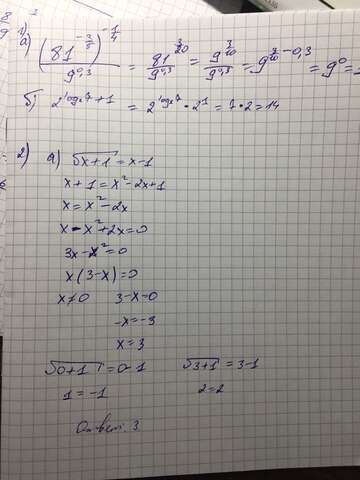 1)
а) (81^{-3/5})^{-1/4} / 9^{0,3} = 81^{3/20} / 9^{0,3} = 9^{3/10} / 9^{0,3} = 9^{3/10 - 0,3} = 9^0 =
б) 2^{log_2 7 + 1} = 2^{log_2 7} · 2^1 = 7·2 = 14
2) а) √x+1 = x-1
x+1 = x²-2x+1
x = x²-2x
x - x²+2x=0
3x-x²=0
x(3-x)=0
x≠0 3-x=0
-x=-3
x=3
√0+1 = 0-1 √3+1 = 3-1
1=-1 2=2
Ответ: 3